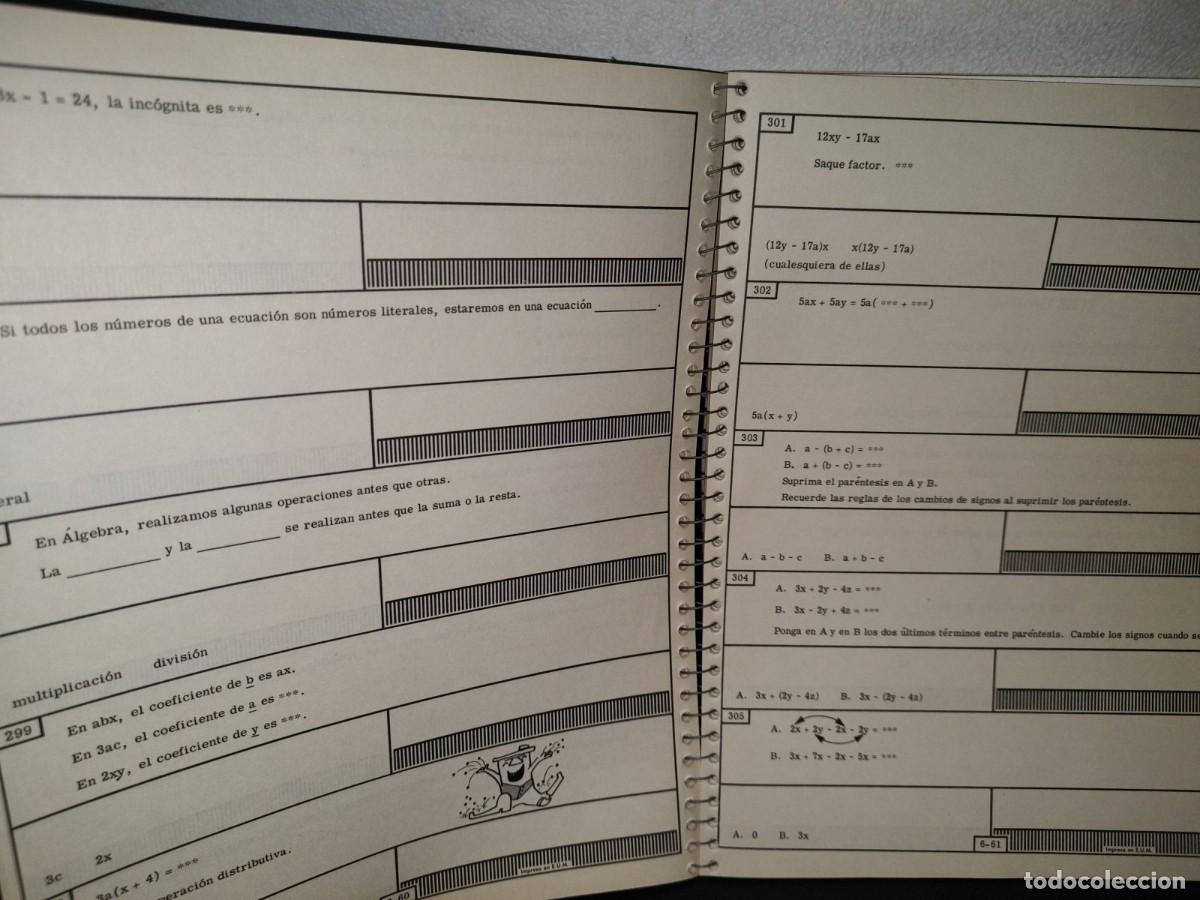 x - 1 = 24, la incógnita es ***.
Si todos los números de una ecuación son números literales, estaremos en una ecuación ________.
eral
En Álgebra, realizamos algunas operaciones antes que otras.
La ________ y la ________ se realizan antes que la suma o la resta.
multiplicación división
299
En abx, el coeficiente de b es ax.
En 3ac, el coeficiente de a es ***.
En 2xy, el coeficiente de y es ***.
3c 2x
3a(x + 4) = ***
eración distributiva.
Impreso en E.U.M.
-60
301
12xy - 17ax
Saque factor. ***
(12y - 17a)x x(12y - 17a)
(cualesquiera de ellas)
302
5ax + 5ay = 5a( *** + ***)
5a(x + y)
303
A. a - (b + c) = ***
B. a + (b - c) = ***
Suprima el paréntesis en A y B.
Recuerde las reglas de los cambios de signos al suprimir los paréntesis.
A. a - b - c B. a + b - c
304
A. 3x + 2y - 4z = ***
B. 3x - 2y + 4z = ***
Ponga en A y en B los dos últimos términos entre paréntesis. Cambie los signos cuando se
A. 3x + (2y - 4z) B. 3x - (2y - 4z)
305
A. 2x + 2y - 2x - 2y = ***
B. 3x + 7x - 2x - 5x = ***
A. 0 B. 3x
6-61
Impreso en E.U.M.
todocoleccion